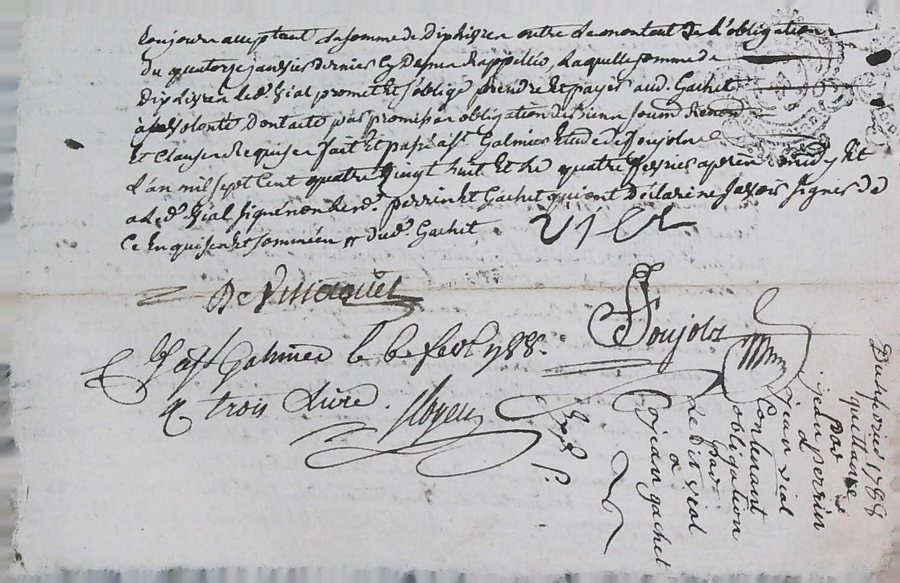 toujours acceptant la somme de dix livres outre le montant de l'obligation
du quatorze janvier dernier cy dessus rappellée, laquelle somme de
dix livres led. Vial promet et s'oblige rendre et payer aud. Gachet
à sa volonté dont acte par promission obligation de biens soumd. Renond.
et clauses requises fait et passé à St. Galmier Etude de Soujols
l'an mil sept cent quatre vingt huit et le quatre fevrier après midy et
a led. Vial signé non lesd. perrin et Gachet qui ont déclaré ne savoir signer de
ce enquis et sommés ff dud. Gachet
Vial
Soujols
à St Galmier le 6 fevr 1788.
trois livre
Du 4 fevrier 1788
quittance
par
jean perrin
à
jean vial
Contenant
obligation
par
Le dit vial
à
jean gachet